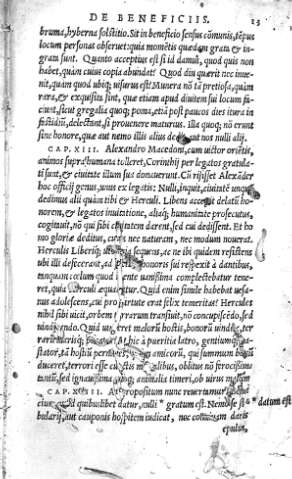 DE BENEFICIIS. 23
bruma, hyberna solstitio. Sit in beneficio sensus cōmunis, tēpus
locum personas obseruet: quia momētis quædam grata & in-
grata sunt. Quanto acceptius est si id damus, quod quis non
habet, quàm cuius copia abundat? Quod diu quærit nec inue-
nit, quàm quod ubiq; uisurus est? Munera nō tā pretiosa, quàm
rara, & exquisita sint, quæ etiam apud diuitem sui locum fa-
ciant, sicut gregalia quoq; poma, etiā post paucos dies itura in
fastidiū, delectant, si prouenere maturius. Illa quoq; nō erunt
sine honore, quæ aut nemo illis alius dedit, aut nos nulli alij.
CAP. XIII. Alexandro Macedoni, cum uictor orientis,
animos supra humana tolleret, Corinthij per legatos gratula-
ti sunt, & ciuitate illum sua donauerunt. Cū risisset Alexāder
hoc officij genus, unus ex legatis: Nulli, inquit, ciuitatē unquā
dedimus alij quàm tibi & Herculi. Libens accepit delatū ho-
norem, & legatos inuitatione, aliaq; humanitate prosecutus,
cogitauit, nō qui sibi ciuitatem darent, sed cui dedissent. Et ho-
mo gloriæ deditus, cuius nec naturam, nec modum nouerat.
Herculis Liberiq; uestigia sequens, ac ne ibi quidem resistens
ubi illi defecerant, ad socium honoris sui respexit à dantibus,
tanquam cœlum quod mente uanissima complectebatur tene-
ret, quia Herculi æquabatur. Quid enim simile habebat uesa-
nus adolescens, cui pro uirtute erat felix temeritas? Hercules
nihil sibi uicit, orbem terrarum transiuit, nō concupiscēdo, sed
uindicando. Quid uinceret malorū hostis, bonorū uindex, ter-
rarū marisq; pacator? At hic à pueritia latro, gentiumq; ua-
stator, tā hostiū pernicies, quàm amicorū, qui summum bonū
duceret, terrori esse cunctis mortalibus, oblitus nō ferocissima
tantū, sed ignauissima quoq; animalia timeri, ob uirus malum
CAP. XIIII. Ad propositum nunc reuertamur.
cium Id quibuslibet datur, nulli * gratum est. Nemo se sta- * datum est
bularij, aut cauponis hospitem iudicat, nec conuiuam dantis
epulum,